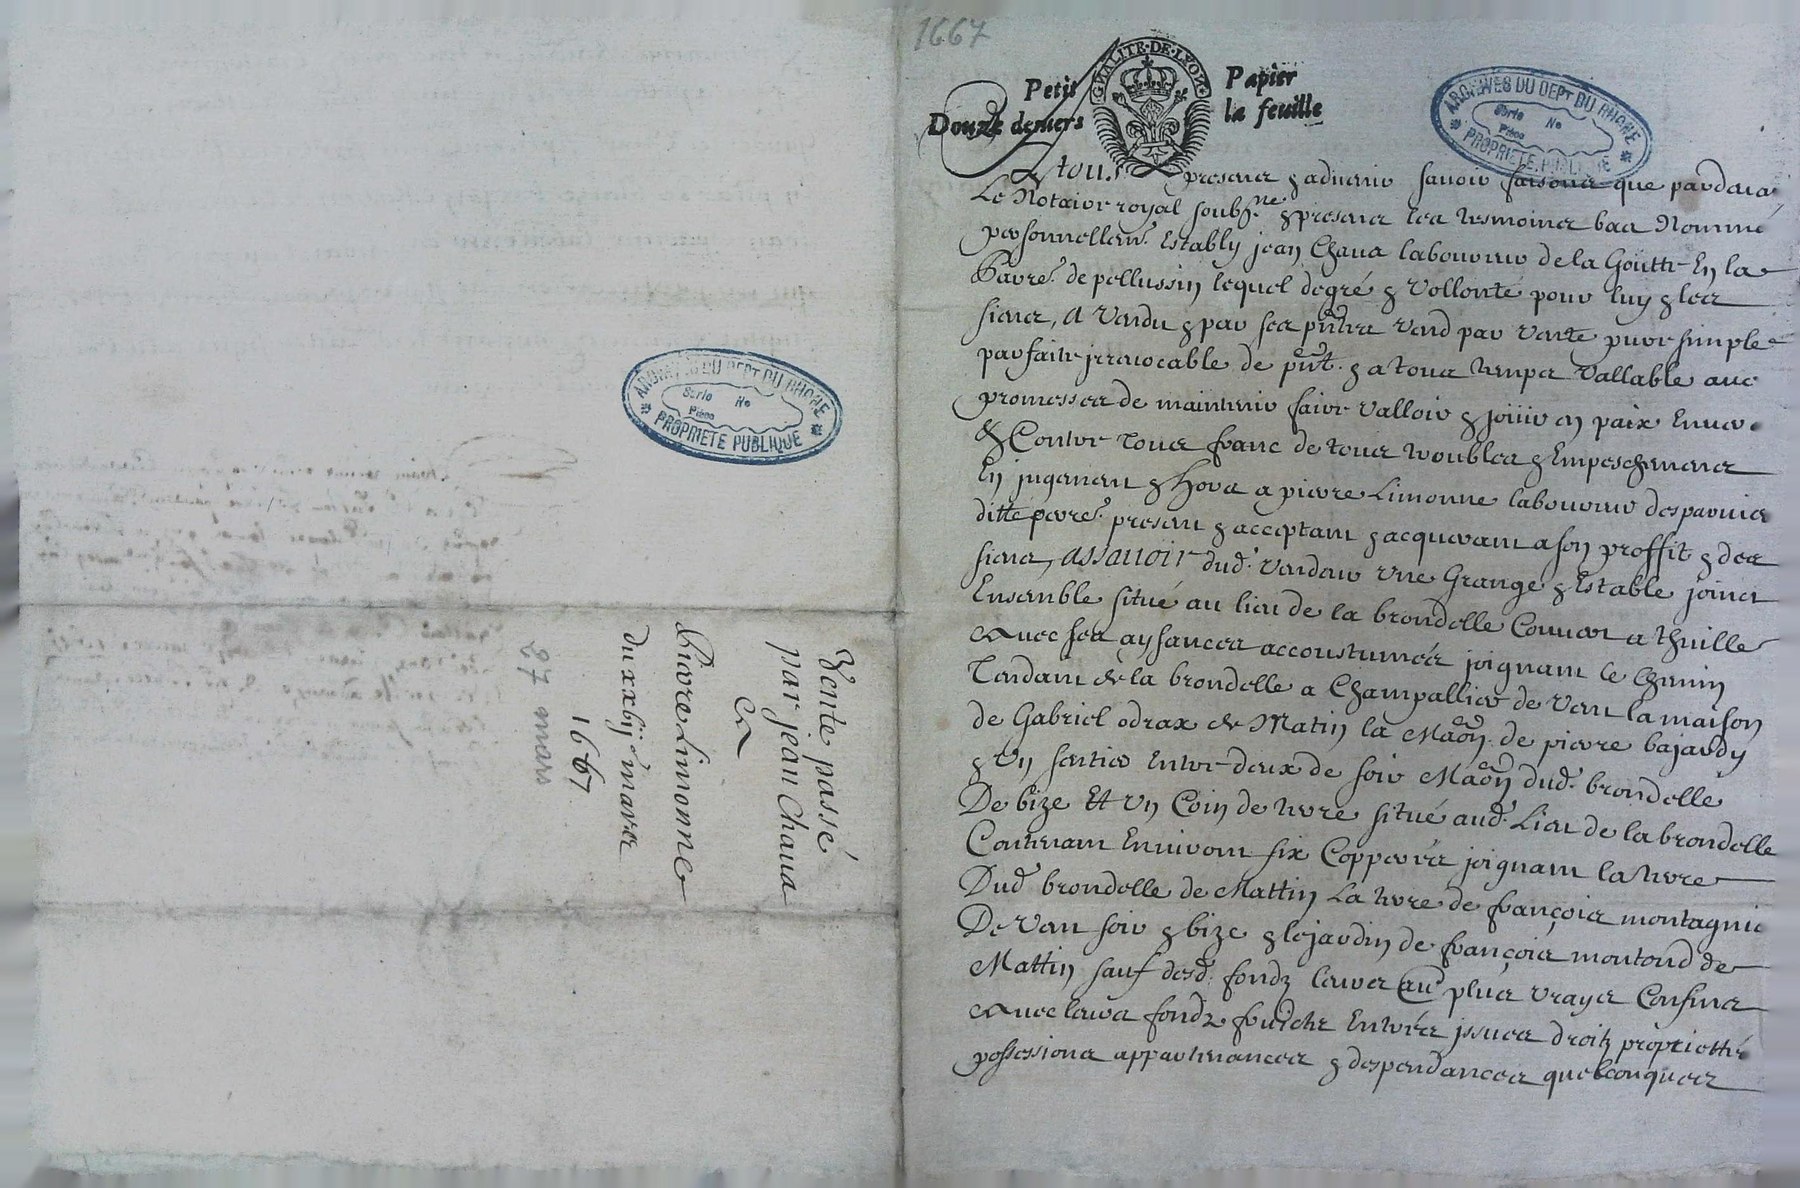 1667
GNALITE·DE·LYON
Petit Papier
Douze deniers la feuille
ARCHIVES DU DEPT DU RHONE
Serie No
Pièce
PROPRIETE PUBLIQUE
A tous presens & aduenir sauoir faisons que pardeua
Le Notaire royal soubs.ne & presens les tesmoins bas Nommé
personnellem.t Estably jean Chaua laboureur de la Goutte En la
Parre. de pellussin lequel de gré & Vollonté pour luy & les
siens, A Vendu & par ses pntes Vend par Vente pure simple
parfaite jrreuocable de pnt. & a tous temps Vallable auec
promesses de maintenir faire Valloir & joüir en paix Enuer
& Contre tous franc de tous troubles & Empeschemens
En jugement & hors a pierre Limonne laboureur
ditte parre. present & acceptant & acquerant a son proffit & des
siens, assauoir dud. Vendeur Vne Grange & Estable joinct
Ensemble situé au lieu de la brondelle Couuert a thuille
Auec ses aysances accoustumées joignant le Chemin
Tendant de la brondelle a Champallier de Vent la maison
de Gabriel odrax de Matin la Maon de pierre bajardy
& Vn sentier Entre deux de soir Maon dud. brondelle
De bize Et Vn Coin de terre situé aud. Lieu de la brondelle
Contenant Enuiron six Copperées joignant la terre
Dud brondelle de Mattin La terre de françois montagnie
De Vent soir & bize & le jardin de françois montond de
Mattin sauf desd. fondz leurs plus Vrayes Confins
Auec leurs fondz fruictz Entrées jssues droitz proprietté
possessions appartenances & despendances quelconques
ARCHIVES DU DEPT DU RHONE
Serie No
Pièce
PROPRIETE PUBLIQUE
Vente passé
par jean Chaua
a
Pierre Limonne
du xxbij mars
1667
27 mars